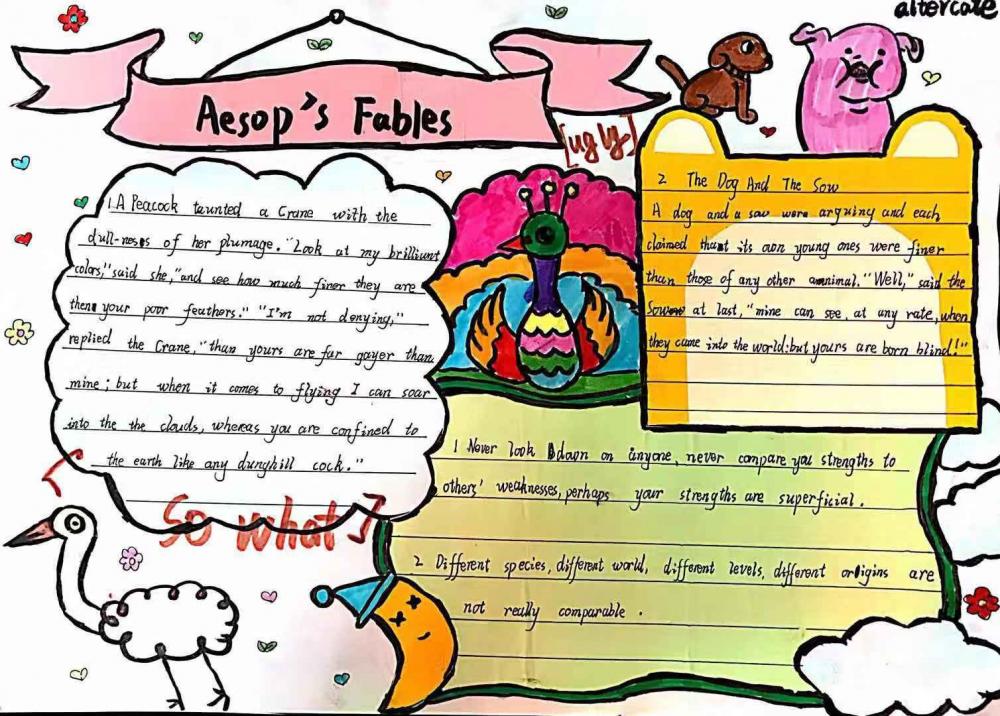 altercate
Aesop's Fables
[ugly]
1. A Peacock taunted a Crane with the
dull-ness of her plumage. "Look at my brilliant
colors," said she, "and see how much finer they are
then your poor feathers." "I'm not denying,"
replied the Crane, "than yours are far gayer than
mine; but when it comes to flying I can soar
into the the clouds, whereas you are confined to
the earth like any dunghill cock."
[So what]
2 The Dog And The Sow
A dog and a sow were arguiny and each
claimed that its own young ones were finer
than those of any other amnimal. "Well," said the
Sow at last, "mine can see, at any rate, when
they came into the world: but yours are born blind!"
1 Never look down on anyone, never compare you strengths to
others' weaknesses, perhaps your strengths are superficial.
2 Different species, different world, different levels, different origins are
not really comparable.